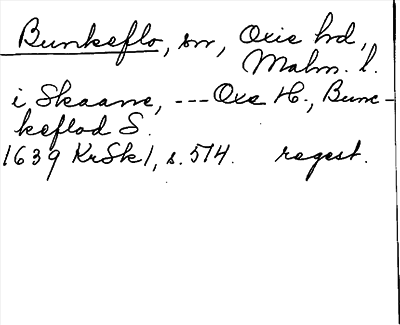 Bunkeflo, sn, Oxie hd,
Malm. l.
i Skaane, --- Oxe H., Bunc-
keflod S.
1639 KrSk1, s. 514. regest.